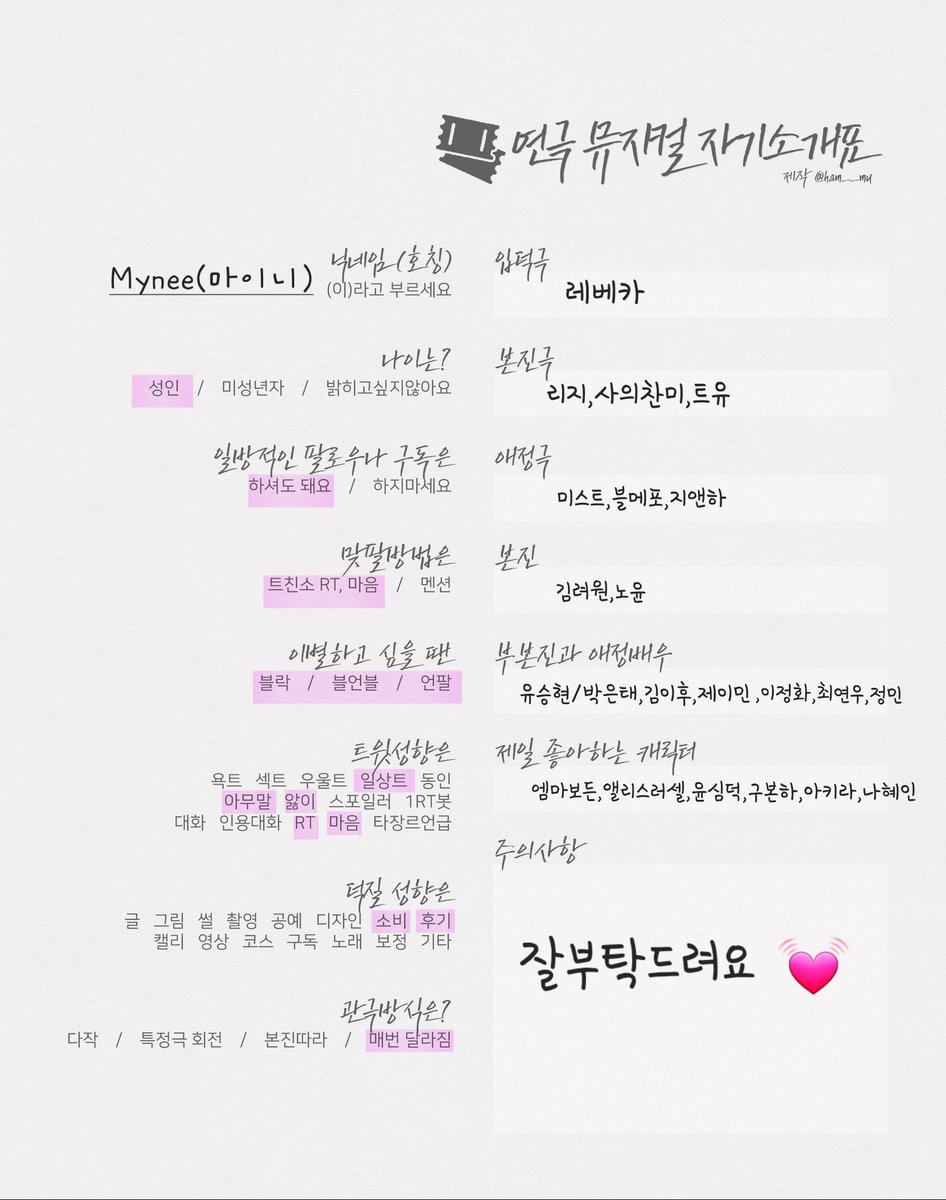 연극 뮤지컬 자기소개표
제작 @ham__mu
Mynee(마이니) 닉네임(호칭)
(이)라고 부르세요
나이는?
성인 / 미성년자 / 밝히고싶지않아요
일방적인 팔로우나 구독은
하셔도 돼요 / 하지마세요
맞팔방법은
트친소 RT, 마음 / 멘션
이별하고 싶을 땐
블락 / 블언블 / 언팔
트윗성향은
욕트 섹트 우울트 일상트 동인
아무말 앓이 스포일러 1RT봇
대화 인용대화 RT 마음 타장르언급
덕질 성향은
글 그림 썰 촬영 공예 디자인 소비 후기
캘리 영상 코스 구독 노래 보정 기타
관극방식은?
다작 / 특정극 회전 / 본진따라 / 매번 달라짐
입덕극
레베카
본진극
리지,사의찬미,트유
애정극
미스트,블메포,지앤하
본진
김려원,노윤
부본진과 애정배우
유승현/박은태,김이후,제이민 ,이정화,최연우,정민
제일 좋아하는 캐릭터
엠마보든,앨리스러셀,윤심덕,구본하,아키라,나혜인
주의사항
잘부탁드려요 💓